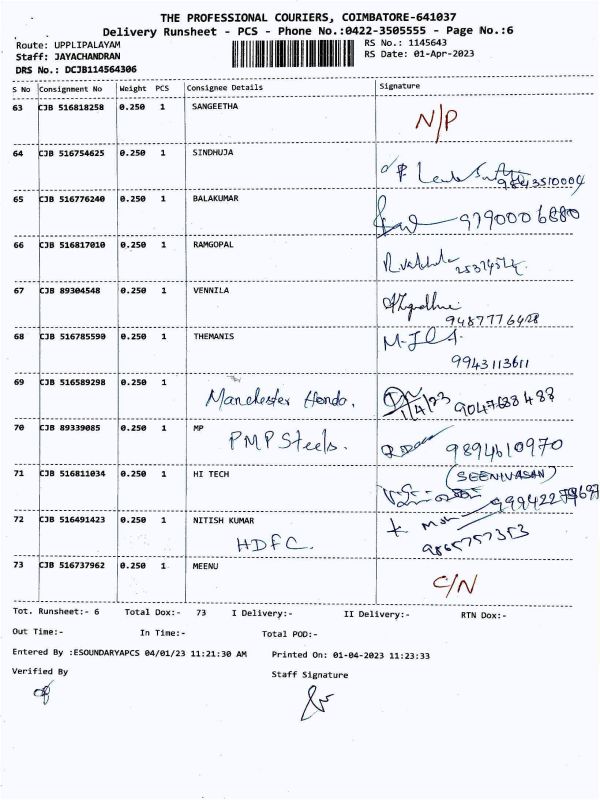 THE PROFESSIONAL COURIERS, COIMBATORE-641037
Delivery Runsheet - PCS - Phone No.:0422-3505555 - Page No.:6
Route: UPPLIPALAYAM RS No.: 1145643
Staff: JAYACHANDRAN RS Date: 01-Apr-2023
DRS No.: DCJB114564306
S No Consignment No Weight PCS Consignee Details Signature
63 CJB 516818258 0.250 1 SANGEETHA
N/P
64 CJB 516754625 0.250 1 SINDHUJA
9843510004
65 CJB 516776240 0.250 1 BALAKUMAR
9790006880
66 CJB 516817010 0.250 1 RAMGOPAL
67 CJB 89304548 0.250 1 VENNILA
9487776428
68 CJB 516785590 0.250 1 THEMANIS
9943113611
69 CJB 516589298 0.250 1
Manchester Honda.
1/4/23 9047688488
70 CJB 89339085 0.250 1 MP
PMP Steels. 9894610970
71 CJB 516811034 0.250 1 HI TECH (SEENIVASAN)
72 CJB 516491423 0.250 1 NITISH KUMAR
HDFC. 9865757353
73 CJB 516737962 0.250 1 MEENU
C/N
Tot. Runsheet:- 6 Total Dox:- 73 I Delivery:- II Delivery:- RTN Dox:-
Out Time:- In Time:- Total POD:-
Entered By :ESOUNDARYAPCS 04/01/23 11:21:30 AM Printed On: 01-04-2023 11:23:33
Verified By Staff Signature